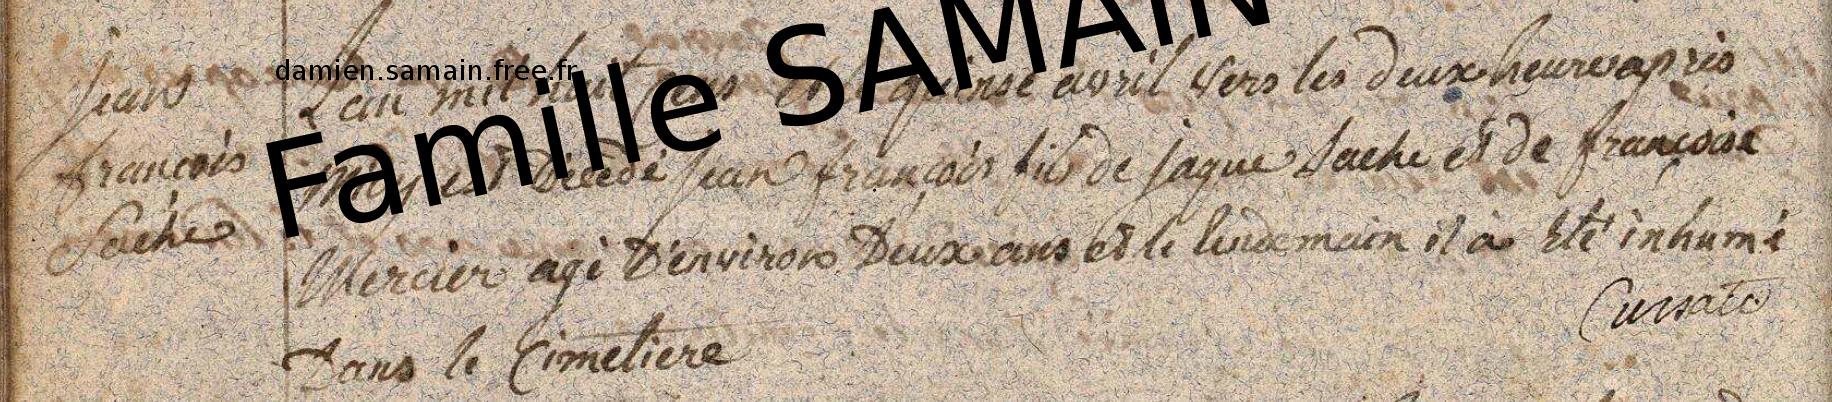 jean
françois
Sache
damien.samain.free.fr
Famille SAMAIN
L'an mil huit et le quinse avril vers les deux heures apris
midy est Décédé jean françois fils de jaque Sache et de françoise
Mercier agé D'environ Deux ans et le lendemain il a Eté inhumé
Dans le Cimetiere